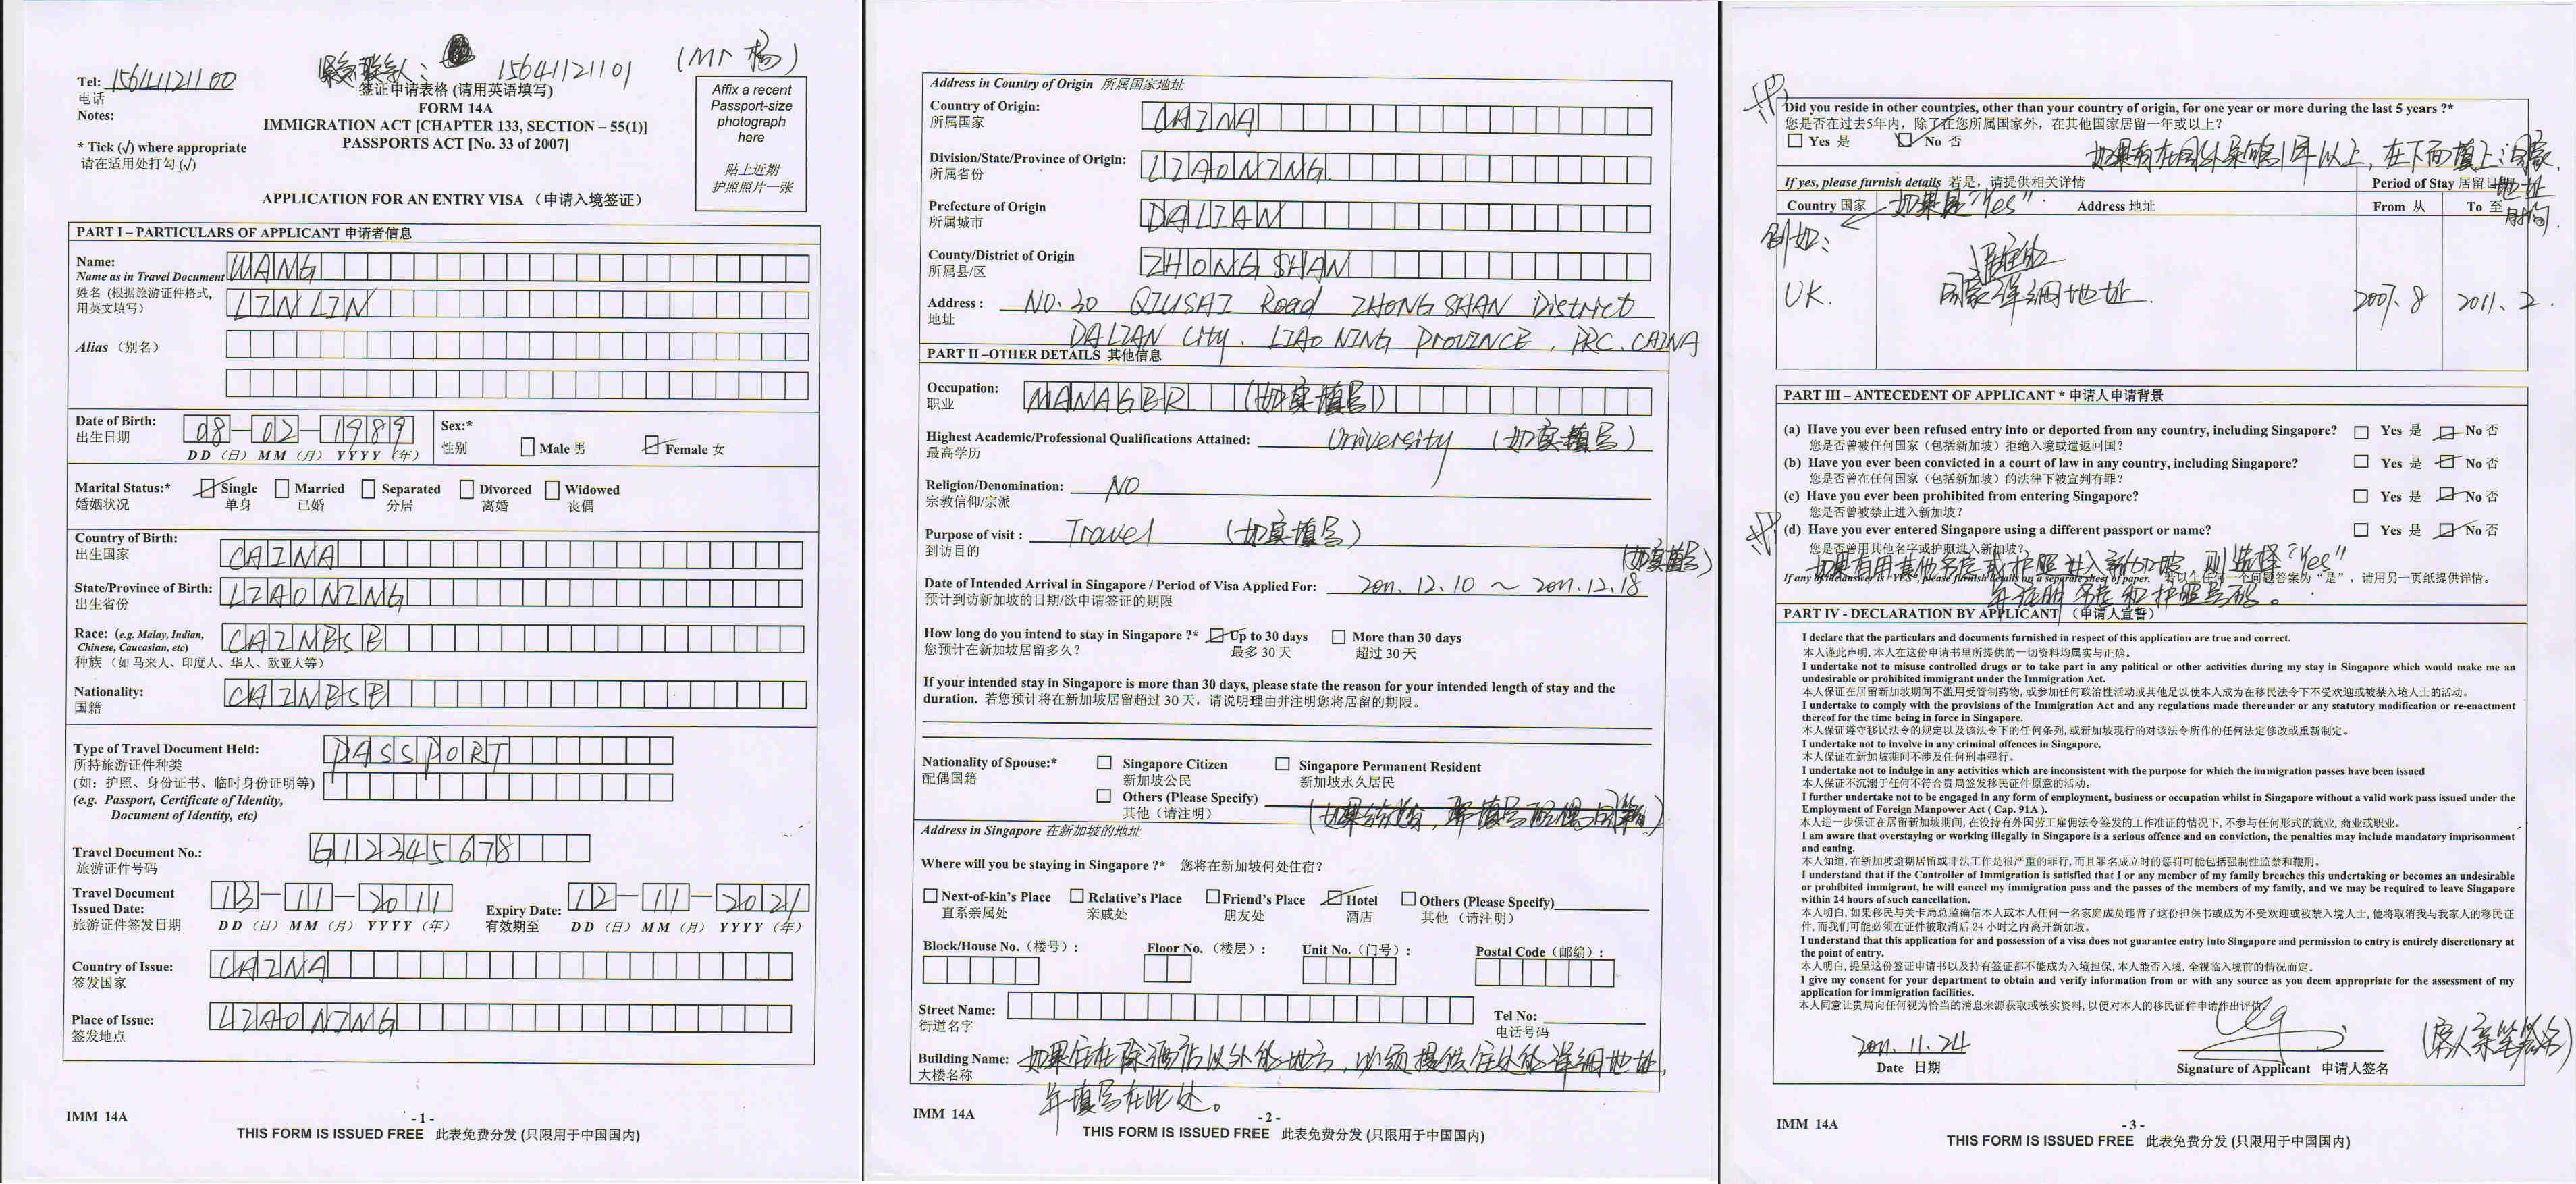 紧急联系人： 15641121101 (Mr 杨)
Tel: 15641121100
电话
Notes:
* Tick (√) where appropriate
请在适用处打勾 (√)
签证申请表格 (请用英语填写)
FORM 14A
IMMIGRATION ACT [CHAPTER 133, SECTION – 55(1)]
PASSPORTS ACT [No. 33 of 2007]
APPLICATION FOR AN ENTRY VISA （申请入境签证）
Affix a recent
Passport-size
photograph
here
贴上近期
护照照片一张
PART I – PARTICULARS OF APPLICANT 申请者信息
Name: WANG
Name as in Travel Document
姓名 (根据旅游证件格式, LINLIN
用英文填写）
Alias （别名）
Date of Birth: 08 — 02 — 1989
出生日期
DD （日） MM （月） YYYY （年）
Sex:*
性别 Male 男 Female 女
Marital Status:* Single Married Separated Divorced Widowed
婚姻状况 单身 已婚 分居 离婚 丧偶
Country of Birth: CHINA
出生国家
State/Province of Birth: LIAONING
出生省份
Race: (e.g. Malay, Indian, CHINESE
Chinese, Caucasian, etc)
种族（如 马来人、印度人、华人、欧亚人等）
Nationality: CHINESE
国籍
Type of Travel Document Held: PASSPORT
所持旅游证件种类
(如：护照、身份证书、临时身份证明等)
(e.g. Passport, Certificate of Identity,
Document of Identity, etc)
Travel Document No.: G12345678
旅游证件号码
Travel Document 13 — 11 — 2011
Issued Date: Expiry Date: 12 — 11 — 2021
旅游证件签发日期 DD （日） MM （月） YYYY （年） 有效期至 DD （日） MM （月） YYYY （年）
Country of Issue: CHINA
签发国家
Place of Issue: LIAONING
签发地点
IMM 14A
- 1 -
THIS FORM IS ISSUED FREE 此表免费分发 (只限用于中国国内)
Address in Country of Origin 所属国家地址
Country of Origin: CHINA
所属国家
Division/State/Province of Origin: LIAONING
所属省份
Prefecture of Origin DALIAN
所属城市
County/District of Origin ZHONG SHAN
所属县/区
Address : NO.30 QIUSHI Road ZHONG SHAN District
地址 DALIAN City. LIAO NING PROVINCE, PRC. CHINA
PART II –OTHER DETAILS 其他信息
Occupation: MANAGER (如实填写)
职业
Highest Academic/Professional Qualifications Attained: University (如实填写)
最高学历
Religion/Denomination: NO
宗教信仰/宗派
Purpose of visit : Travel (如实填写)
到访目的
(如实填写)
Date of Intended Arrival in Singapore / Period of Visa Applied For: 2011.12.10 ~ 2011.12.18
预计到访新加坡的日期/欲申请签证的期限
How long do you intend to stay in Singapore ?* Up to 30 days More than 30 days
您预计在新加坡居留多久？ 最多 30 天 超过 30 天
If your intended stay in Singapore is more than 30 days, please state the reason for your intended length of stay and the
duration. 若您预计将在新加坡居留超过 30 天，请说明理由并注明您将居留的期限。
Nationality of Spouse:* Singapore Citizen Singapore Permanent Resident
配偶国籍 新加坡公民 新加坡永久居民
Others (Please Specify)
其他（请注明） (如果结婚，那填写配偶国籍)
Address in Singapore 在新加坡的地址
Where will you be staying in Singapore ?* 您将在新加坡何处住宿？
Next-of-kin's Place Relative's Place Friend's Place Hotel Others (Please Specify)
直系亲属处 亲戚处 朋友处 酒店 其他 （请注明）
Block/House No.（楼号）: Floor No. （楼层）: Unit No.（门号）: Postal Code（邮编）:
Street Name: Tel No:
街道名字 电话号码
Building Name: 如果住在除酒店以外的地方，必须提供住处的详细地址，
大楼名称 并填写在此处。
IMM 14A
- 2 -
THIS FORM IS ISSUED FREE 此表免费分发 (只限用于中国国内)
Did you reside in other countries, other than your country of origin, for one year or more during the last 5 years ?*
您是否在过去5年内，除了在您所属国家外，在其他国家居留一年或以上？
Yes 是 No 否
如果有在国外居留1年以上，在下面填上：国家
地址
时间
If yes, please furnish details 若是，请提供相关详情 Period of Stay 居留日期
Country 国家 如果是"Yes" Address 地址 From 从 To 至
例如：
居住的
UK. 国家详细地址 2007.8 2011.2
PART III – ANTECEDENT OF APPLICANT * 申请人申请背景
(a) Have you ever been refused entry into or deported from any country, including Singapore? Yes 是 No 否
您是否曾被任何国家（包括新加坡）拒绝入境或遣返回国？
(b) Have you ever been convicted in a court of law in any country, including Singapore? Yes 是 No 否
您是否曾在任何国家（包括新加坡）的法律下被宣判有罪？
(c) Have you ever been prohibited from entering Singapore? Yes 是 No 否
您是否曾被禁止进入新加坡？
(d) Have you ever entered Singapore using a different passport or name? Yes 是 No 否
您是否曾用其他名字或护照进入新加坡？
如果有用其他名字或护照进入新加坡，则选择"Yes"
If any of the answer is "YES", please furnish details on a separate sheet of paper. 若以上任何一个问题答案为 "是"，请用另一页纸提供详情。
并注明名字和护照号码。
PART IV - DECLARATION BY APPLICANT （申请人宣誓）
I declare that the particulars and documents furnished in respect of this application are true and correct.
本人谨此声明, 本人在这份申请书里所提供的一切资料均属实与正确。
I undertake not to misuse controlled drugs or to take part in any political or other activities during my stay in Singapore which would make me an
undesirable or prohibited immigrant under the Immigration Act.
本人保证在居留新加坡期间不滥用受管制药物, 或参加任何政治性活动或其他足以使本人成为在移民法令下不受欢迎或被禁入境人士的活动。
I undertake to comply with the provisions of the Immigration Act and any regulations made thereunder or any statutory modification or re-enactment
thereof for the time being in force in Singapore.
本人保证遵守移民法令的规定以及该法令下的任何条列, 或新加坡现行的对该法令所作的任何法定修改或重新制定。
I undertake not to involve in any criminal offences in Singapore.
本人保证在新加坡期间不涉及任何刑事罪行。
I undertake not to indulge in any activities which are inconsistent with the purpose for which the immigration passes have been issued
本人保证不沉溺于任何不符合贵局签发移民证件原意的活动。
I further undertake not to be engaged in any form of employment, business or occupation whilst in Singapore without a valid work pass issued under the
Employment of Foreign Manpower Act ( Cap. 91A).
本人进一步保证在居留新加坡期间, 在没持有外国劳工雇佣法令签发的工作准证的情况下, 不参与任何形式的就业, 商业或职业。
I am aware that overstaying or working illegally in Singapore is a serious offence and on conviction, the penalties may include mandatory imprisonment
and caning.
本人知道, 在新加坡逾期居留或非法工作是很严重的罪行, 而且罪名成立时的惩罚可能包括强制性监禁和鞭刑。
I understand that if the Controller of Immigration is satisfied that I or any member of my family breaches this undertaking or becomes an undesirable
or prohibited immigrant, he will cancel my immigration pass and the passes of the members of my family, and we may be required to leave Singapore
within 24 hours of such cancellation.
本人明白, 如果移民与关卡局总监确信本人或本人任何一名家庭成员违背了这份担保书或成为不受欢迎或被禁入境人士, 他将取消我与我家人的移民证
件, 而我们可能必须在证件被取消后 24 小时之内离开新加坡。
I understand that this application for and possession of a visa does not guarantee entry into Singapore and permission to entry is entirely discretionary at
the point of entry.
本人明白, 提呈这份签证申请书以及持有签证都不能成为入境担保, 本人能否入境, 全视临入境前的情况而定。
I give my consent for your department to obtain and verify information from or with any source as you deem appropriate for the assessment of my
application for immigration facilities.
本人同意让贵局向任何视为恰当的消息来源获取或核实资料, 以便对本人的移民证件申请作出评估。
2011.11.24 (客人亲笔签名)
Date 日期 Signature of Applicant 申请人签名
IMM 14A
- 3 -
THIS FORM IS ISSUED FREE 此表免费分发 (只限用于中国国内)